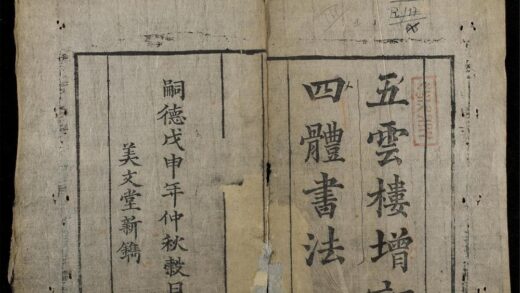 五雲樓增
四體書法
嗣德戊申年仲秋穀日
美文堂新鐫